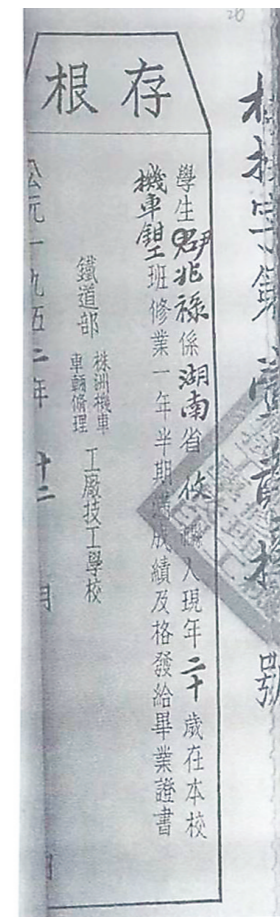 字第號
存根
學生兆祿係湖南省攸縣人現年二十歲在本校
機車鉗工班修業一年半期滿成績及格發給畢業證書
鐵道部 株洲機車車輛修理 工廠技工學校
公元一九五二年十二月